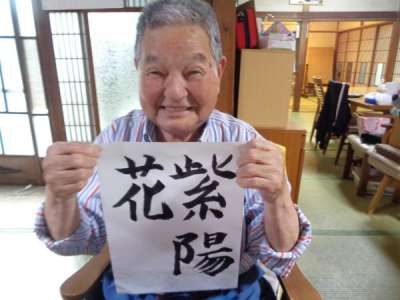 紫陽
花